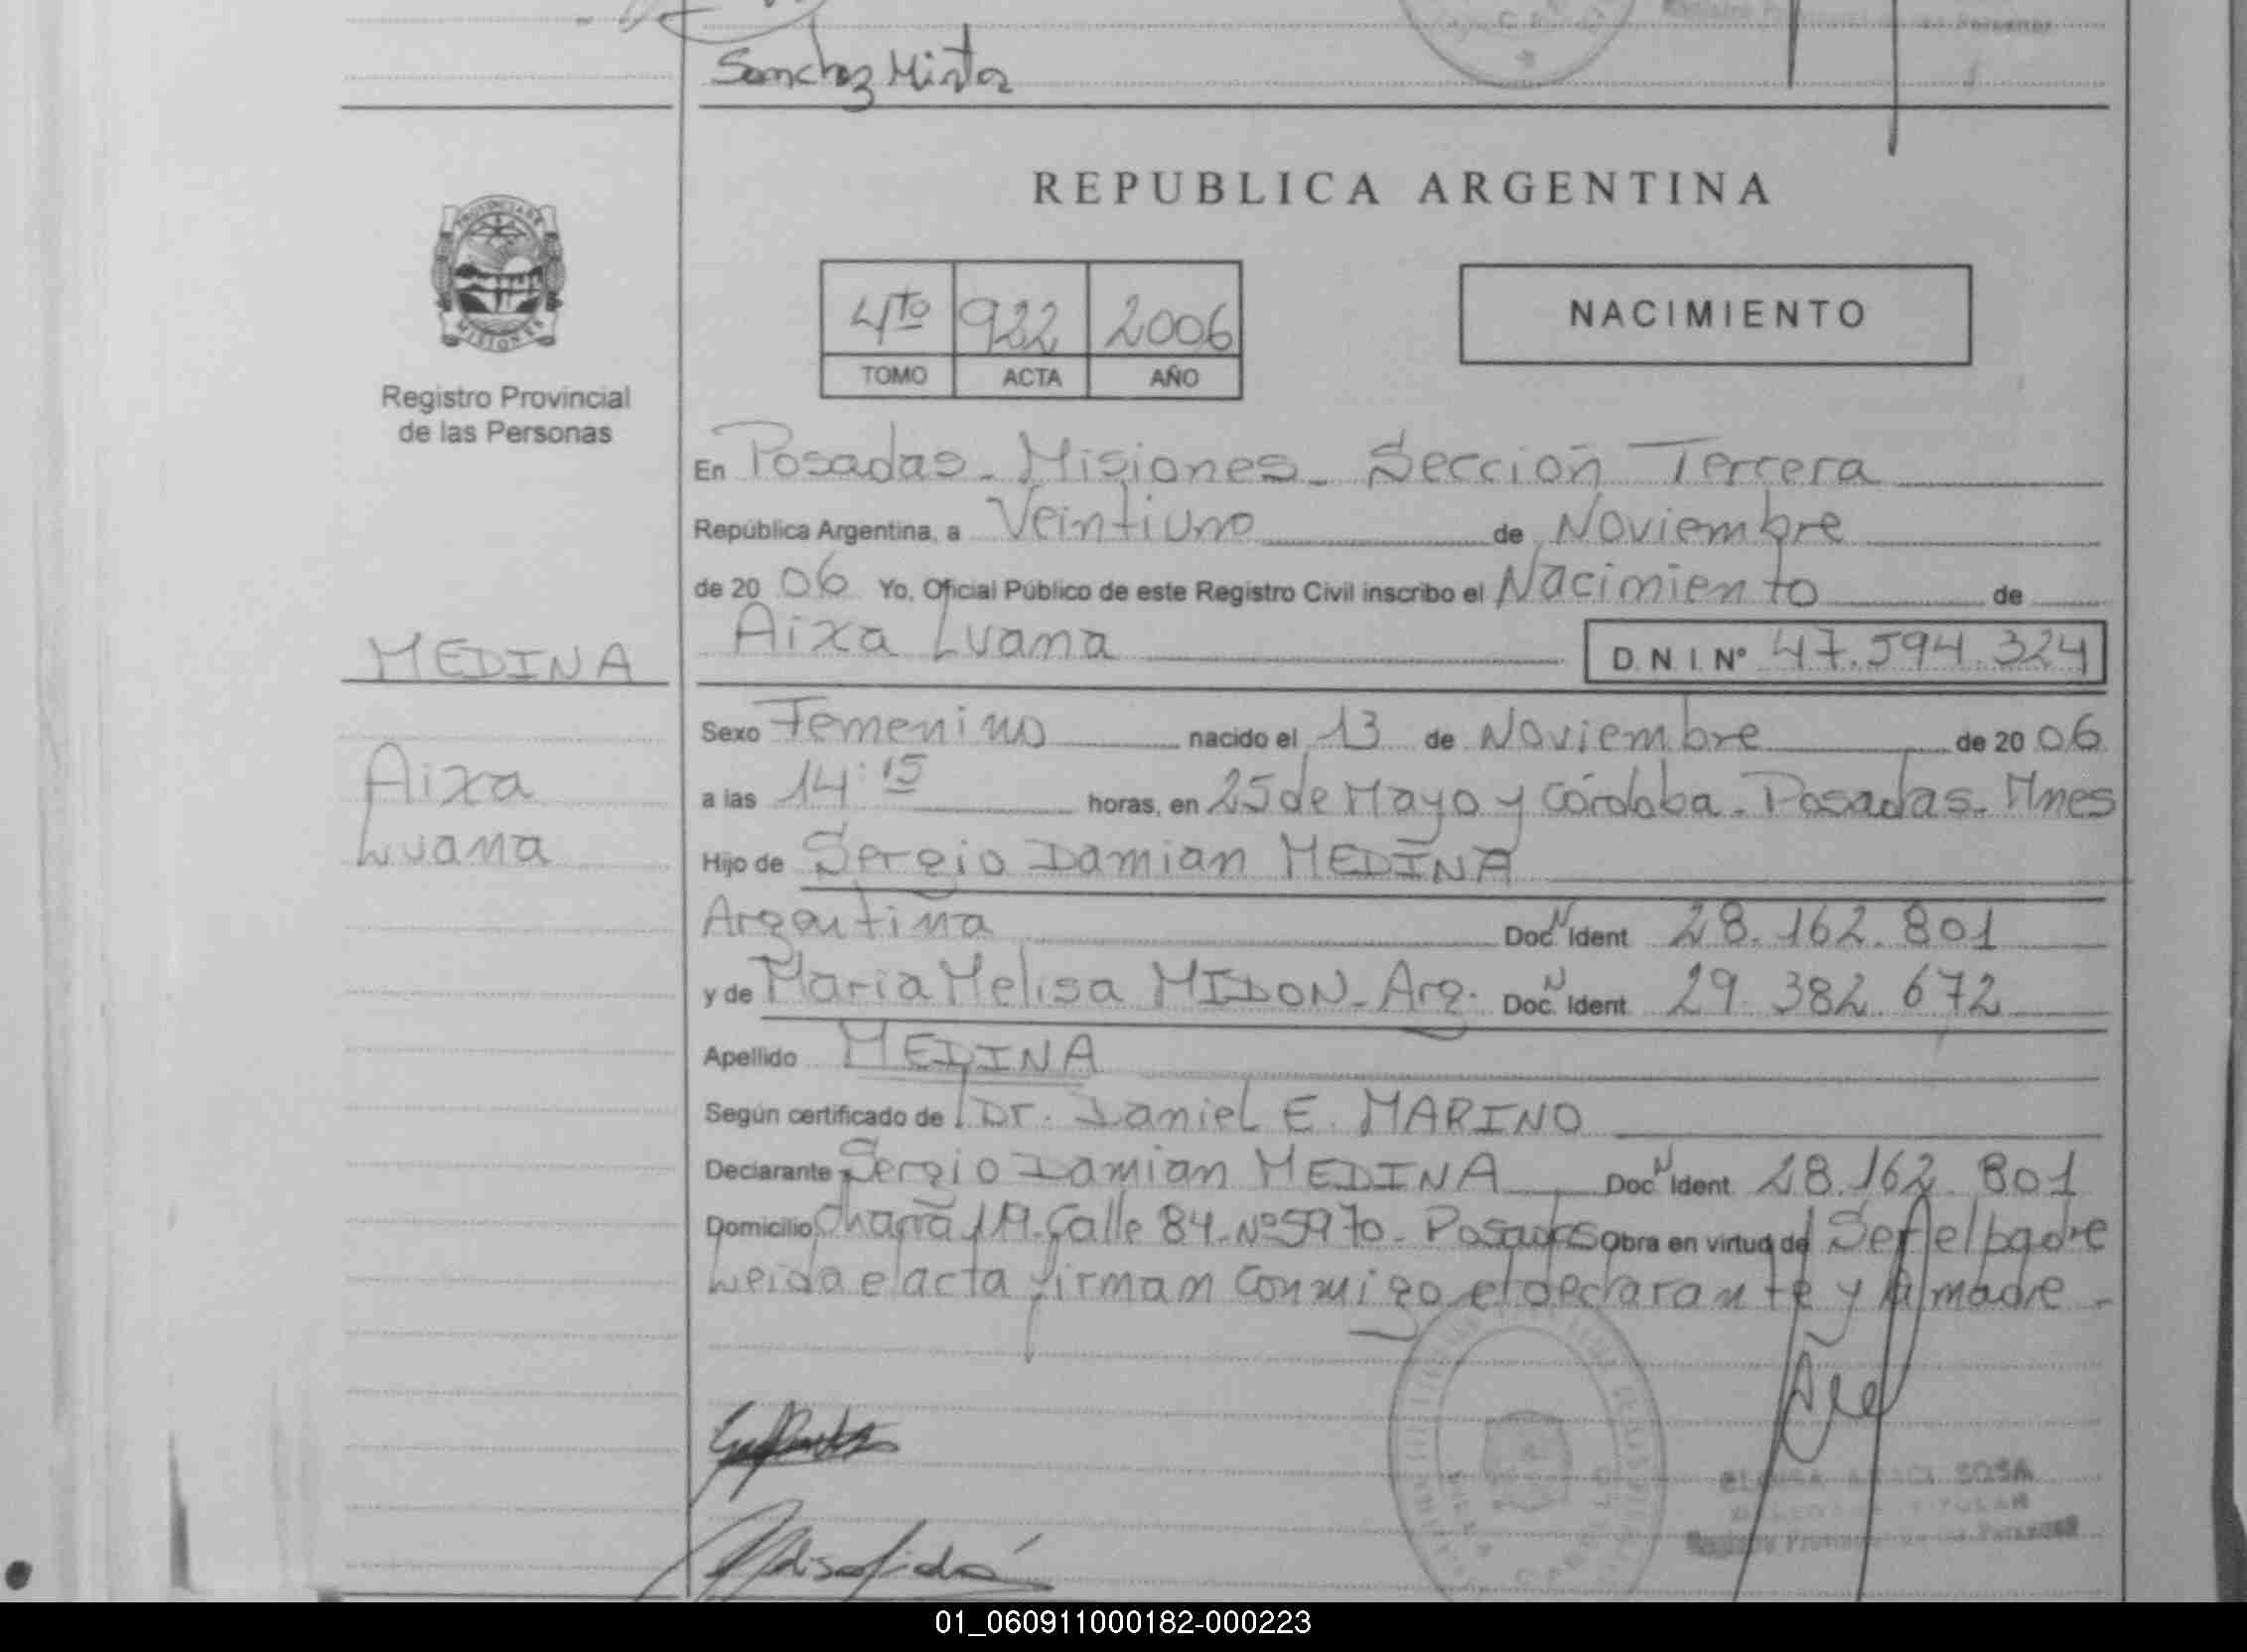 Sanchez Mirta
REPUBLICA ARGENTINA
PROVINCIA DE
MISIONES
4to 922 2006
TOMO ACTA AÑO
NACIMIENTO
Registro Provincial
de las Personas
En Posadas - Misiones - Sección Tercera
República Argentina, a Veintiuno de Noviembre
de 20 06 Yo, Oficial Público de este Registro Civil inscribo el Nacimiento de
Aixa Luana D.N.I. Nº 47.594.324
MEDINA
Aixa
Luana
Sexo Femenino nacido el 13 de Noviembre de 20 06
a las 14:15 horas, en 25 de Mayo y Córdoba - Posadas - Mnes
Hijo de Sergio Damian MEDINA
Argentina Doc. Ident N 28.162.801
y de Maria Melisa MIDON - Arg. Doc. Ident N 29.382.672
Apellido MEDINA
Según certificado de Dr. Daniel E. MARINO
Declarante Sergio Damian MEDINA Doc Ident N 28.162.801
Domicilio Chacra 119. Calle 84. Nº 5970 - Posadas Obra en virtud de Ser el padre
Leida el acta firman conmigo el declarante y la madre -
SOSA
TITULAR
Registro
01_060911000182-000223